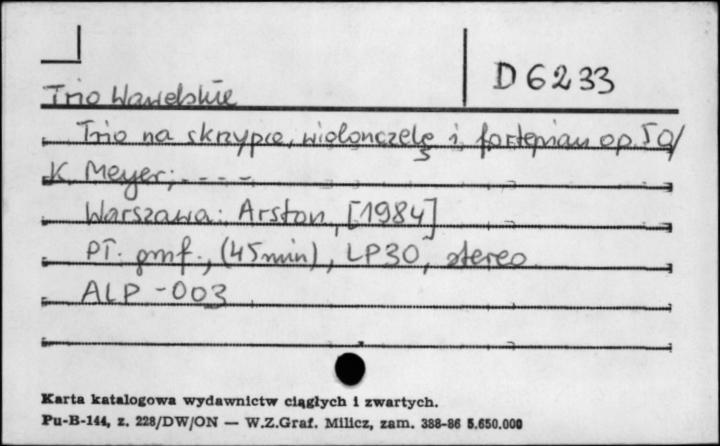 D 6233
Trio Wawelskie
Trio na skrzypce, wiolonczelę i fortepian op. 50/
K. Meyer; - - - -
Warszawa: Arston, [1984]
Pł. gmf., (45 min), LP30, stereo
ALP - 003
Karta katalogowa wydawnictw ciągłych i zwartych.
Pu-B-144, z. 228/DW/ON — W.Z.Graf. Milicz, zam. 388-86 5.650.000